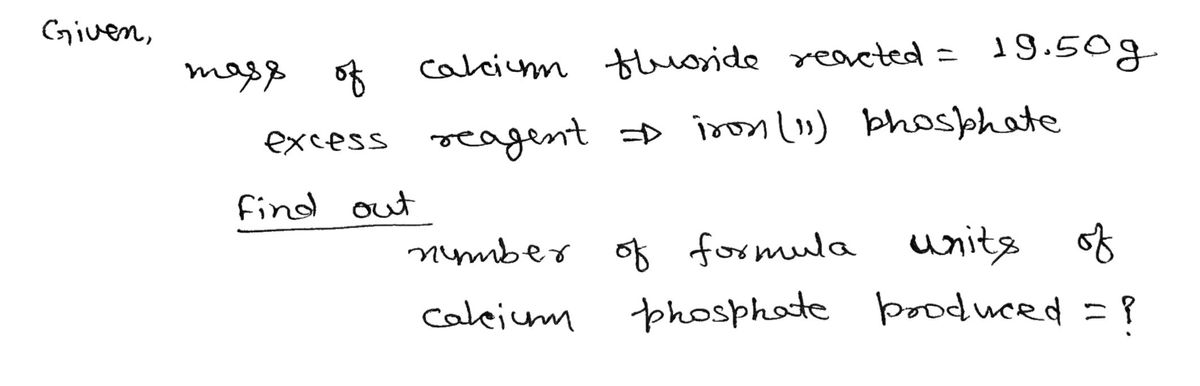 Given,
mass of calcium fluoride reacted = 19.50g
excess reagent ⇒ iron(II) phosphate
Find out
number of formula units of
calcium phosphate produced = ?